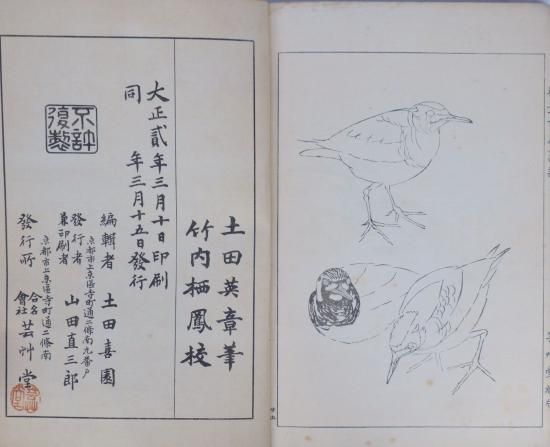 土田英章筆
竹内栖鳳校
大正貳年三月十日印刷
同 年三月十五日發行
不許
復製
編輯者 土田喜園
京都市上京區寺町通二條南九番戸
發行者
兼印刷者 山田直三郎
京都市上京區寺町通二條南
發行所 合名會社 芸艸堂
廿五